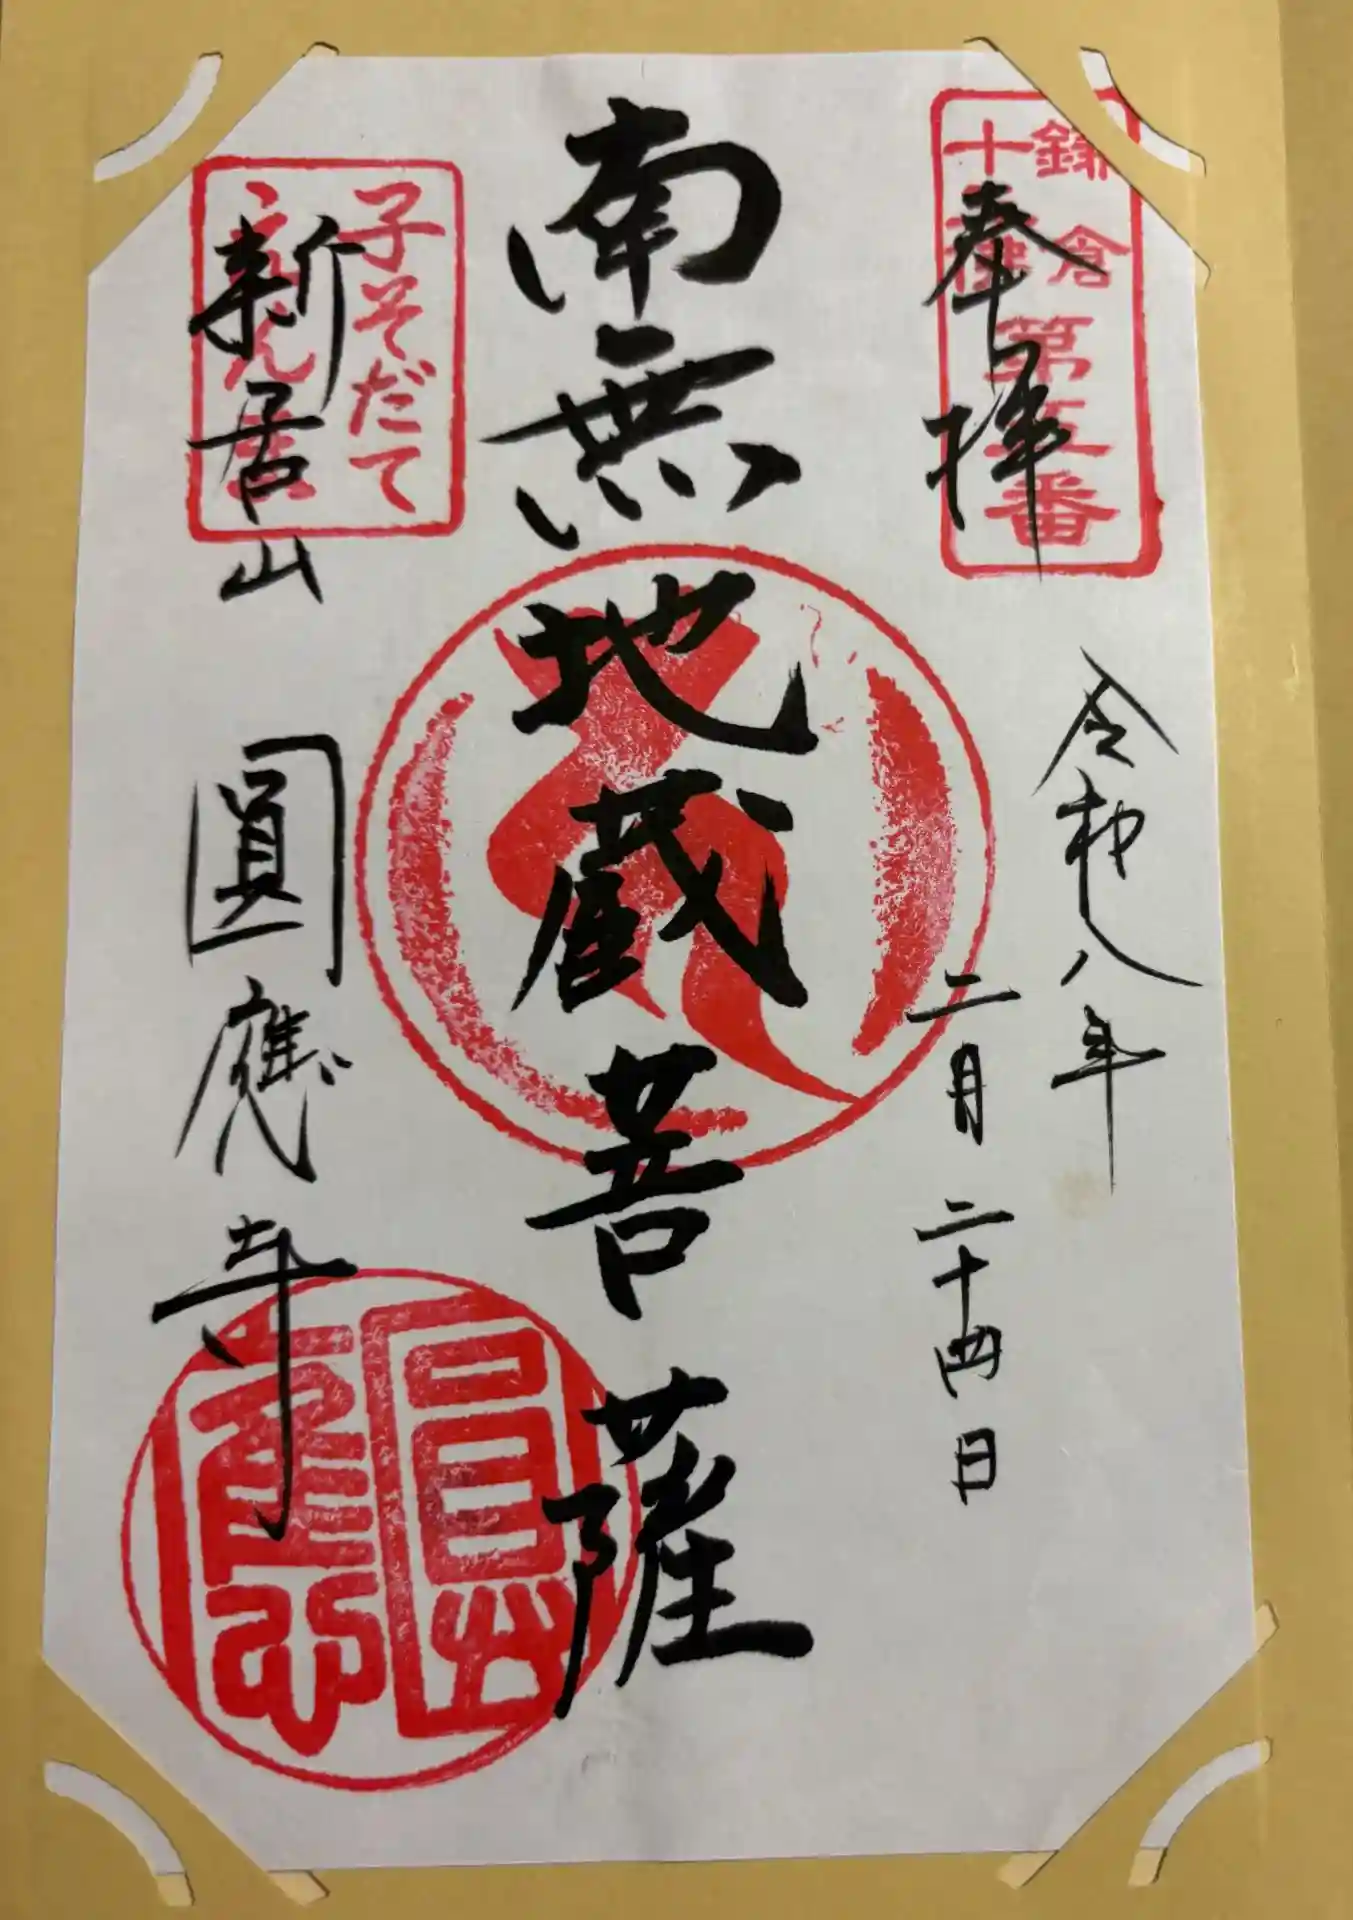 鎌倉
第五番
奉拝
令和八年
二月二十四日
南無地蔵菩薩
子そだて
新居山
圓應寺
圓應